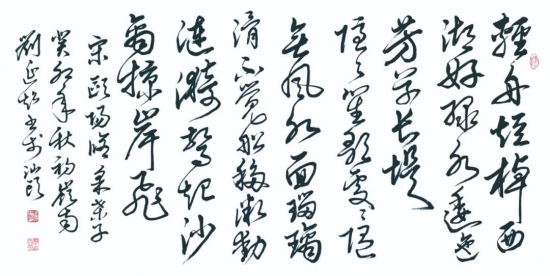 輕舟短棹西
湖好綠水逶迤
芳草長堤
隱々笙歌處々隨
無風水面瑠璃
滑不覺船移微動
漣漪驚起沙
禽掠岸飛
宋歐陽脩采桑子
癸卯年秋初嶺南
劉延書於汕頭